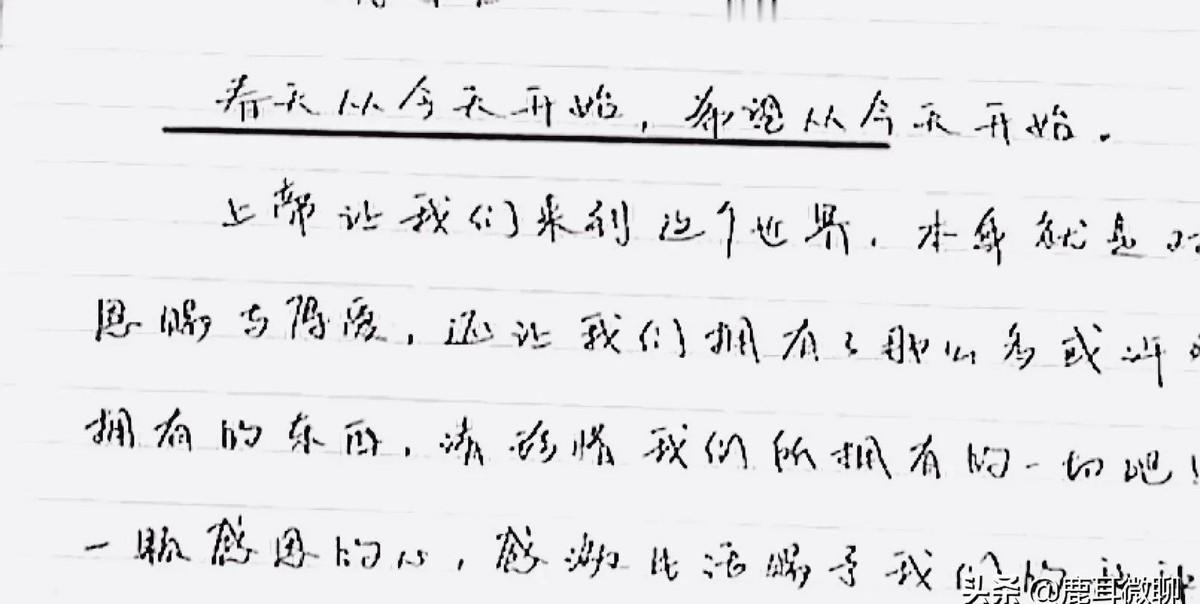 春天从今天开始，希望从今天开始．
上帝让我们来到这个世界．本身就是对
恩赐与厚爱，还让我们拥有了那么多或许
拥有的东西，请珍惜我们所拥有的一切吧！
一脉感恩的心，感激生活赐予我们的
头条 @鹿耳微聊